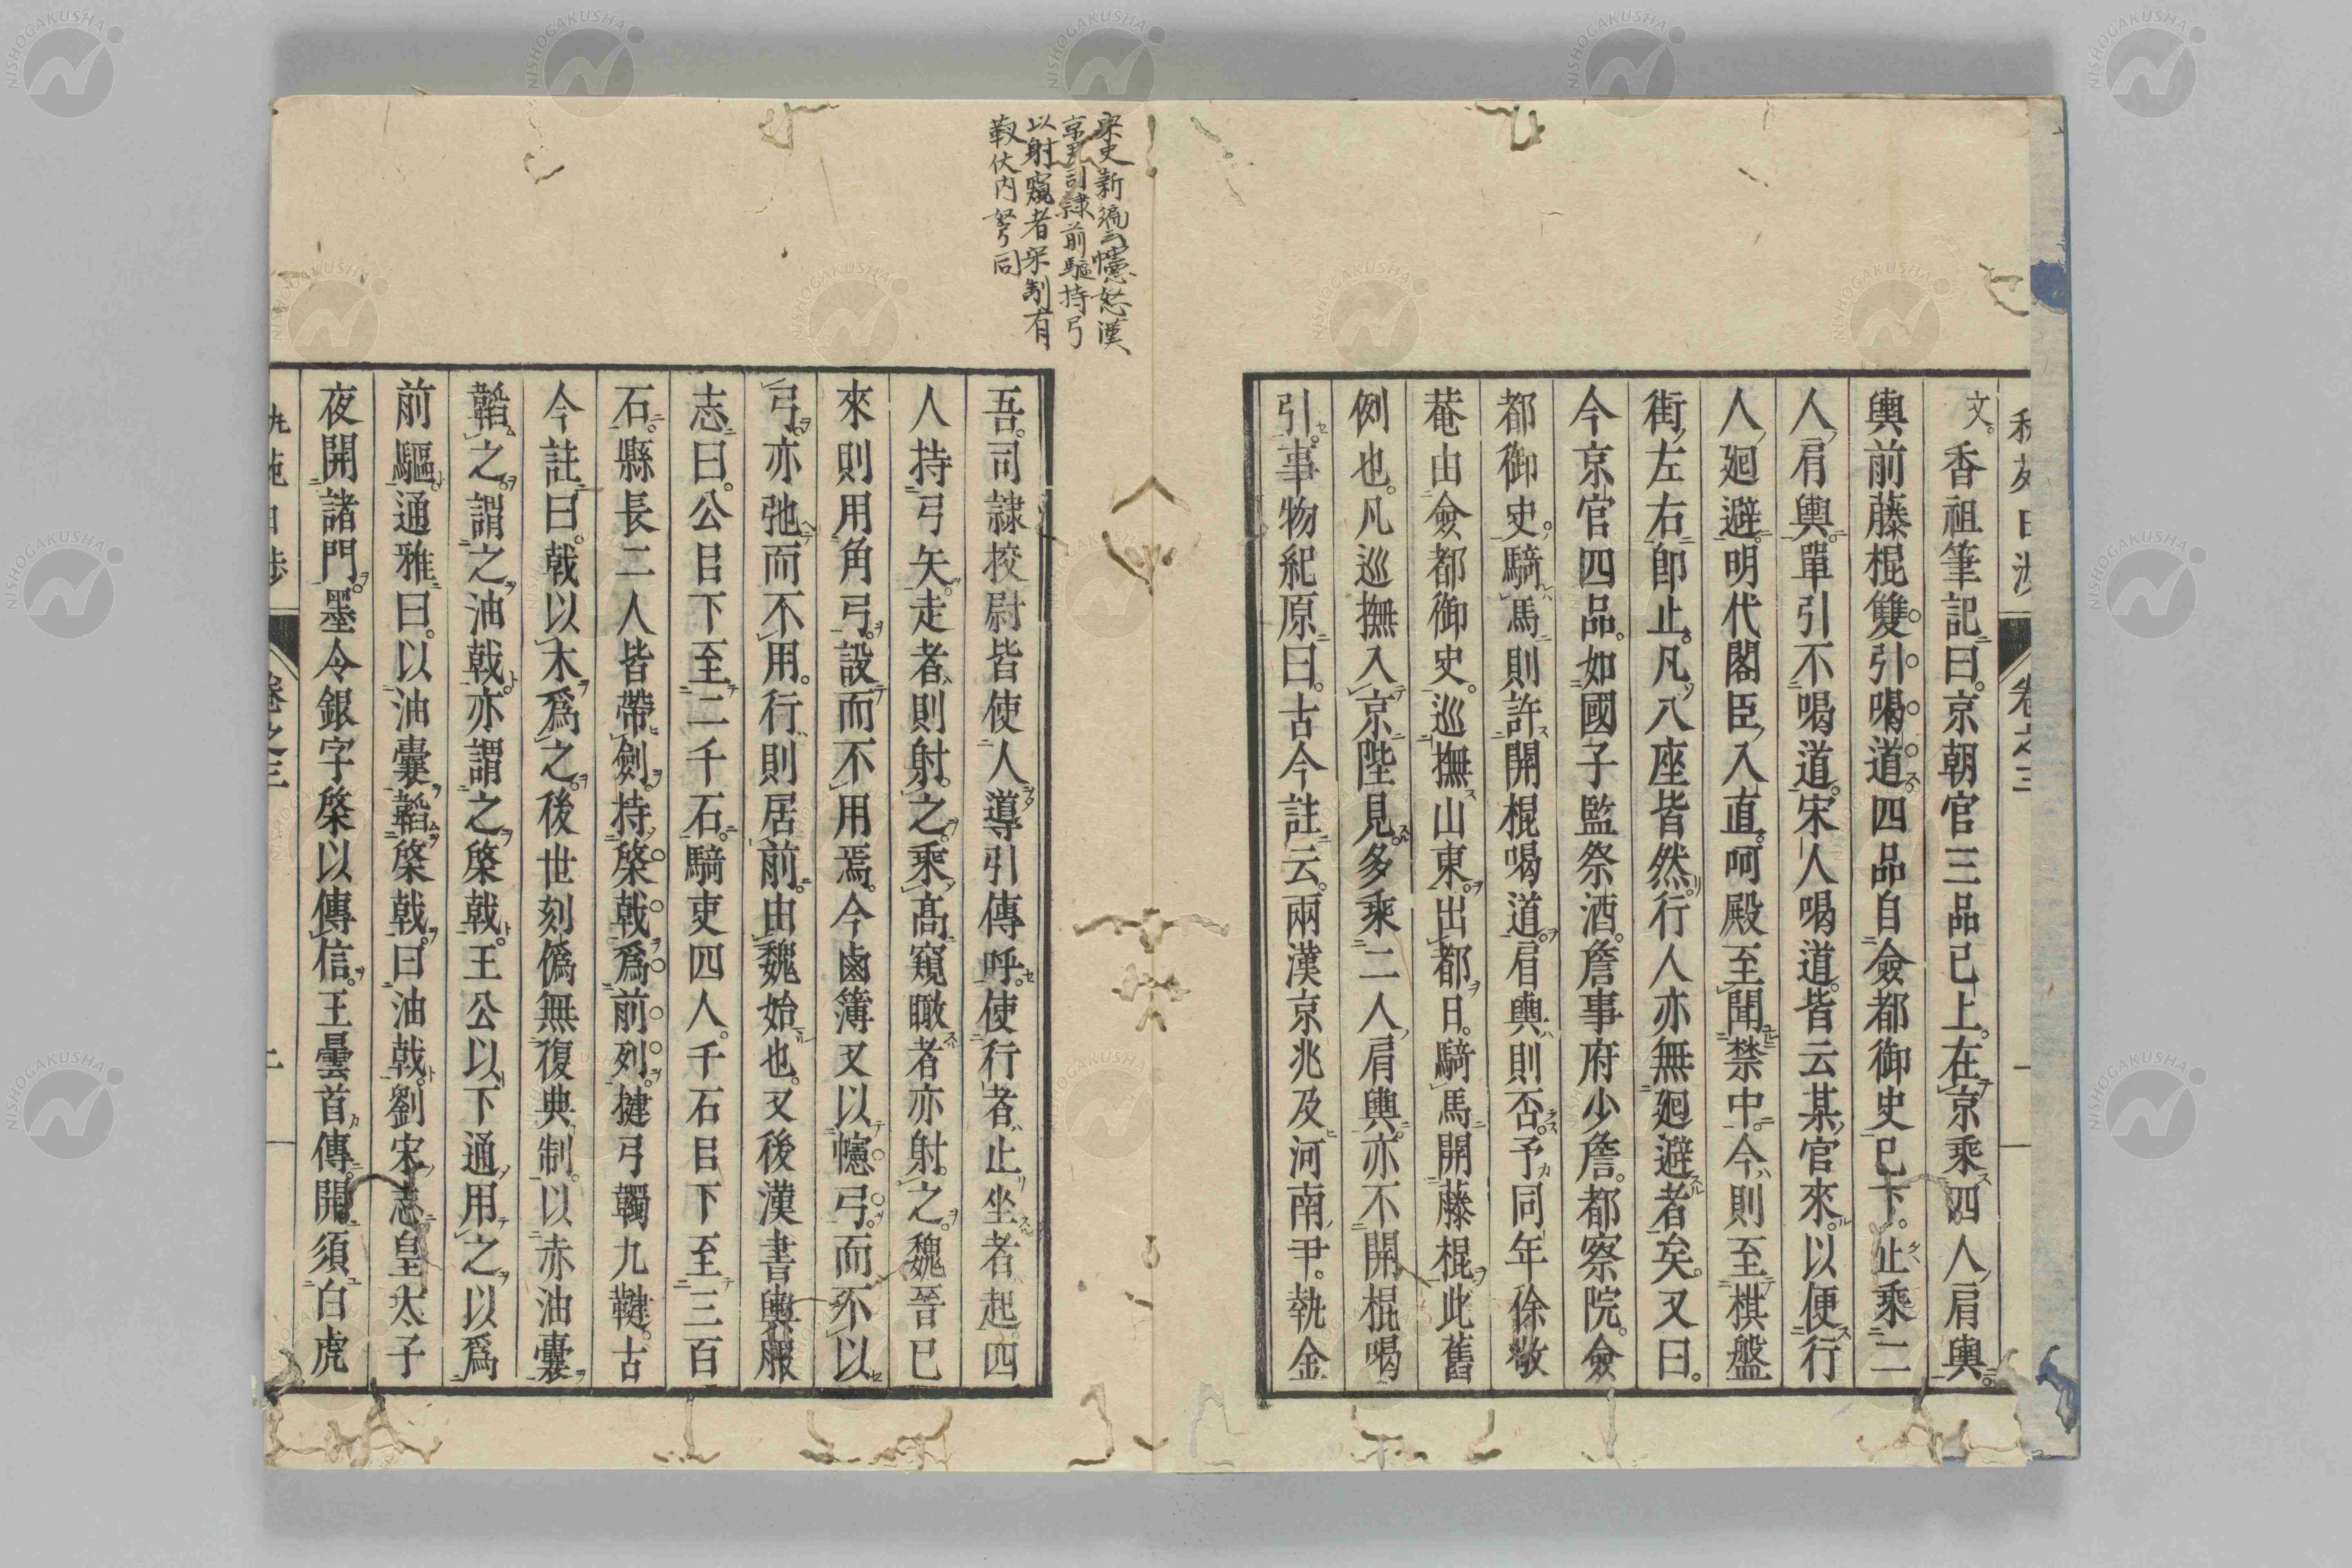 文。香祖筆記曰。京朝官三品已上。在京乘四人肩輿。
輿前藤棍雙引喝道。四品自僉都御史已下。止乘二
人肩輿。單引不喝道。宋人喝道。皆云某官來。以便行
人廻避。明代閣臣入直。呵殿至聞禁中。今則至棋盤
街左右即止。凡八座皆然。行人亦無廻避者矣。又曰。
今京官四品。如國子監祭酒。詹事府少詹。都察院。僉
都御史。騎馬則許開棍喝道。肩輿則否。予同年徐敬
菴由僉都御史。巡撫山東。出都日。騎馬開藤棍。此舊
例也。凡巡撫入京陛見。多乘二人肩輿。亦不開棍喝
引。事物紀原曰。古今註云。兩漢京兆及河南尹。執金
宋史新編云幰弩漢
京尹司隷前驅持弓
以射窺者宋制有
靫伏内弩同
吾。司隷挍尉皆使人導引傳呼。使行者止坐者起。四
人持弓矢。走者則射之。乘高窺瞰者亦射之。魏晉已
來則用角弓。設而不用焉。今鹵簿又以幰弓。而不以
弓。亦弛而不用。行則居前。由魏始也。又後漢書輿服
志曰。公㠯下至二千石。騎吏四人。千石㠯下至三百
石。縣長二人皆帶劍。持棨戟爲前列。揵弓韣九鞬。古
今註曰。戟以木爲之。後世刻僞無復典制。以赤油囊
韜之。謂之油戟。亦謂之棨戟。王公以下通用之以爲
前驅。通雅曰。以油囊韜棨戟。曰油戟。劉宋志皇太子
夜開諸門。墨令銀字棨以傳信。王曇首傳。開須白虎
卷之三